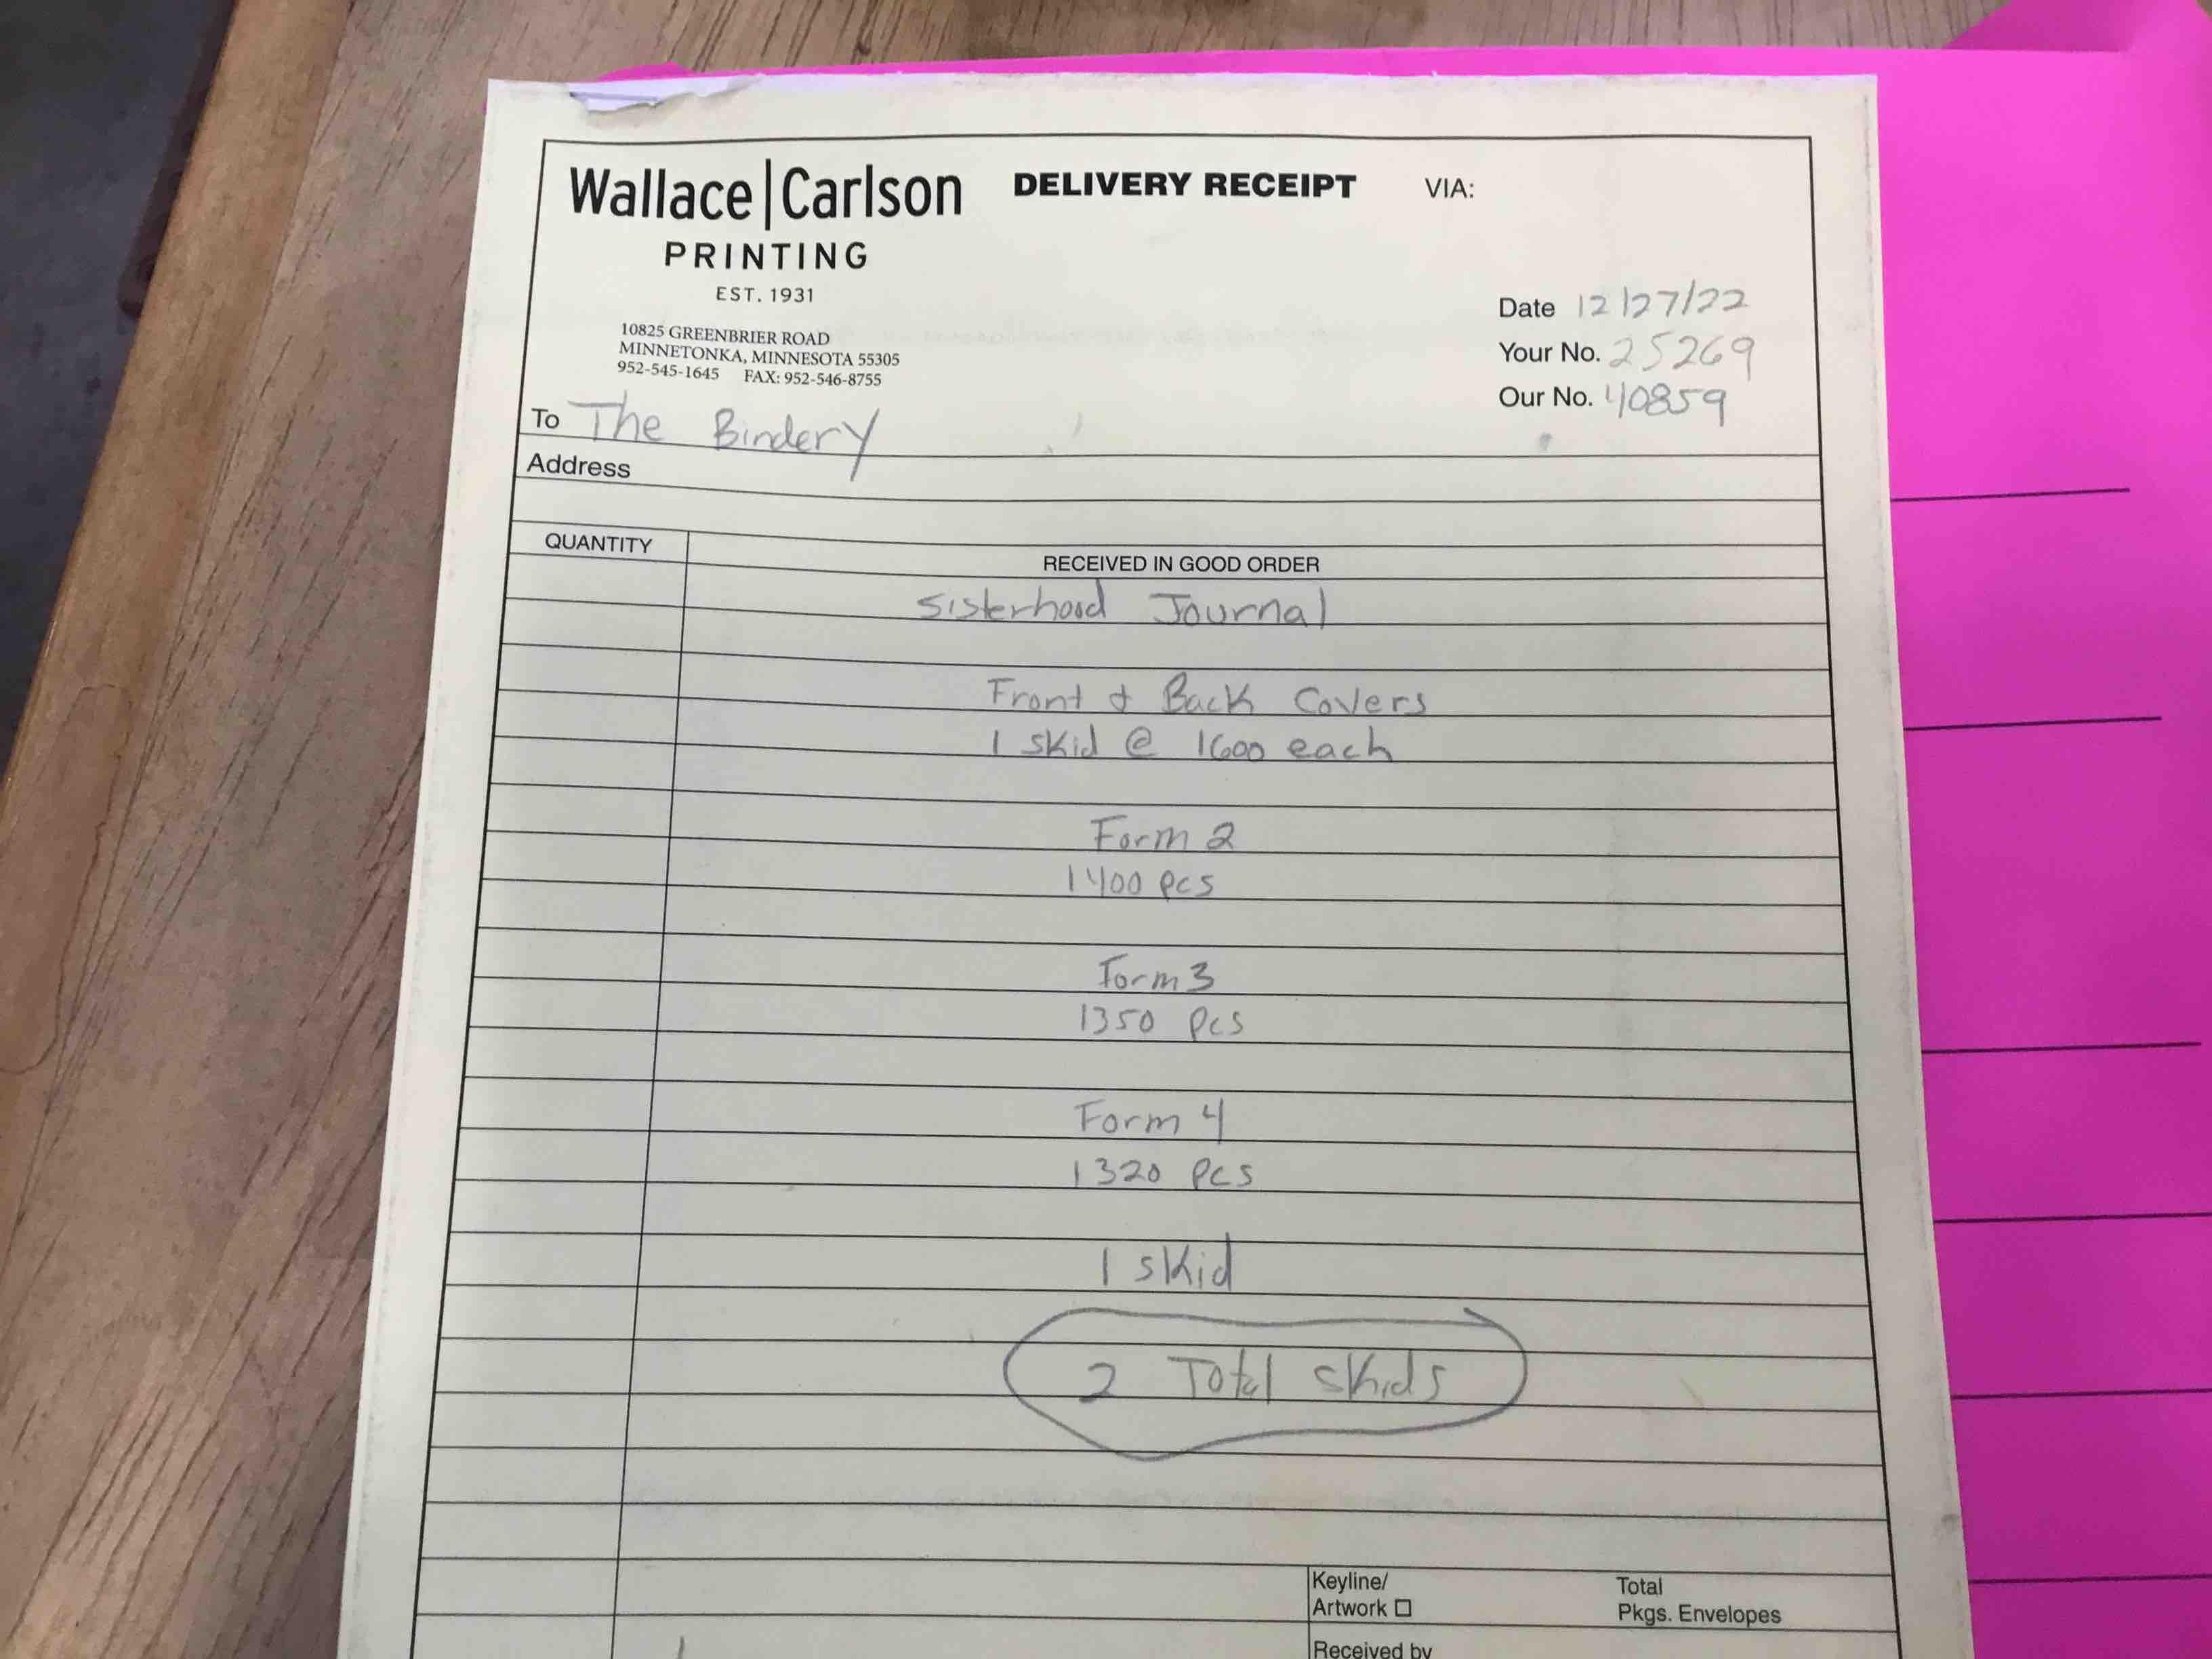 Wallace|Carlson DELIVERY RECEIPT VIA:
PRINTING
EST. 1931
10825 GREENBRIER ROAD
MINNETONKA, MINNESOTA 55305
952-545-1645 FAX: 952-546-8755
Date 12/27/22
Your No. 25269
Our No. 40859
To The Bindery
Address
QUANTITY RECEIVED IN GOOD ORDER
Sisterhood Journal
Front & Back Covers
1 skid @ 1600 each
Form 2
1400 pcs
Form 3
1350 pcs
Form 4
1320 pcs
1 skid
2 Total skids
Keyline/ Total
Artwork ☐ Pkgs. Envelopes
Received by